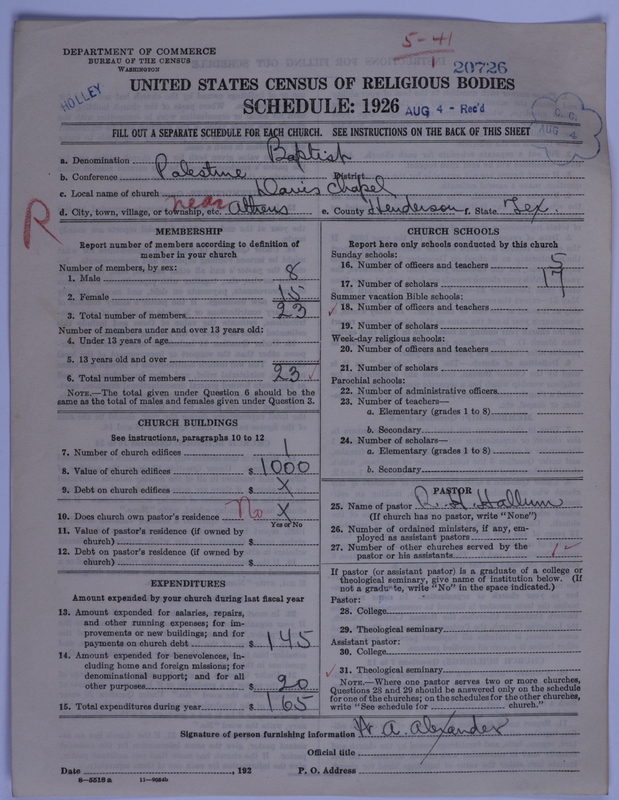 5-41
1
20726
DEPARTMENT OF COMMERCE
BUREAU OF THE CENSUS
WASHINGTON
HOLLEY
UNITED STATES CENSUS OF RELIGIOUS BODIES
SCHEDULE: 1926 AUG 4 - Rec'd
C. C.
AUG 4
FILL OUT A SEPARATE SCHEDULE FOR EACH CHURCH. SEE INSTRUCTIONS ON THE BACK OF THIS SHEET
a. Denomination Baptist
b. Conference Palestine District
c. Local name of church Davis Chapel
near
d. City, town, village, or township, etc. Athens e. County Henderson f. State Tex.
R
MEMBERSHIP
Report number of members according to definition of
member in your church
Number of members, by sex:
1. Male 8
2. Female 15
3. Total number of members 23
Number of members under and over 13 years old:
4. Under 13 years of age
5. 13 years old and over
6. Total number of members 23 ✓
NOTE.—The total given under Question 6 should be
same as the total of males and females given under Question 3.
CHURCH BUILDINGS
See instructions, paragraphs 10 to 12
7. Number of church edifices 1
8. Value of church edifices $ 1000
9. Debt on church edifices $ X
10. Does church own pastor's residence No X
Yes or No
11. Value of pastor's residence (if owned by
church) $
12. Debt on pastor's residence (if owned by
church) $
EXPENDITURES
Amount expended by your church during last fiscal year
13. Amount expended for salaries, repairs,
and other running expenses; for im-
provements or new buildings; and for
payments on church debt $ 145
14. Amount expended for benevolences, in-
cluding home and foreign missions; for
denominational support; and for all
other purposes $ 20
15. Total expenditures during year $ 165
CHURCH SCHOOLS
Report here only schools conducted by this church
Sunday schools:
16. Number of officers and teachers 5
17. Number of scholars 17
Summer vacation Bible schools:
✓ 18. Number of officers and teachers
19. Number of scholars
Week-day religious schools:
20. Number of officers and teachers
21. Number of scholars
Parochial schools:
22. Number of administrative officers
23. Number of teachers—
a. Elementary (grades 1 to 8)
b. Secondary
24. Number of scholars—
a. Elementary (grades 1 to 8)
b. Secondary
PASTOR
25. Name of pastor R. H. Hallum
(If church has no pastor, write "None")
26. Number of ordained ministers, if any, em-
ployed as assistant pastors
27. Number of other churches served by the
pastor or his assistants 1 ✓
If pastor (or assistant pastor) is a graduate of a college or
theological seminary, give name of institution below. (If
not a graduate, write "No" in the space indicated.)
Pastor:
28. College
29. Theological seminary
Assistant pastor:
30. College
✓ 31. Theological seminary
NOTE.—Where one pastor serves two or more churches,
Questions 28 and 29 should be answered only on the schedule
for one of the churches; on the schedules for the other churches,
write "See schedule for church."
Signature of person furnishing information A. Alexander
Official title
Date , 192 P. O. Address
8-5518 a 11-9054b